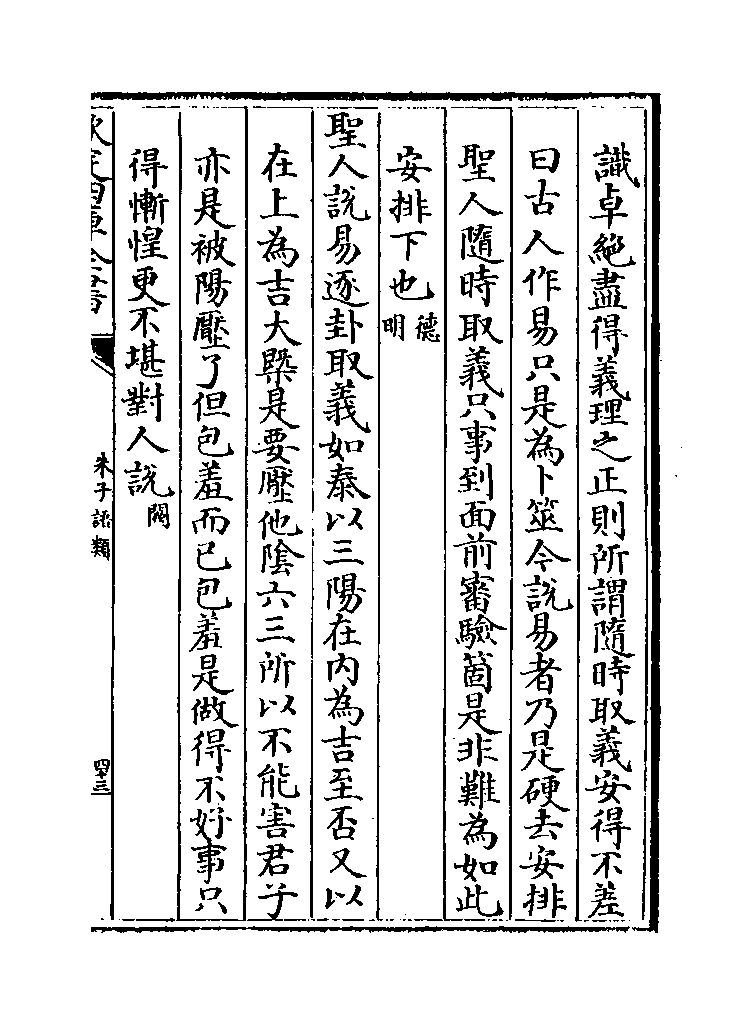 識卓絕盡得義理之正則所謂隨時取義安得不差
曰古人作易只是為卜筮今說易者乃是硬去安排
聖人隨時取義只事到面前審驗箇是非難為如此
安排下也德明
聖人說易逐卦取義如泰以三陽在內為吉至否又以
在上為吉大槩是要壓他陰六三所以不能害君子
亦是被陽壓了但包羞而已包羞是做得不好事只
得慚惶更不堪對人說閎
朱子語類
四十三